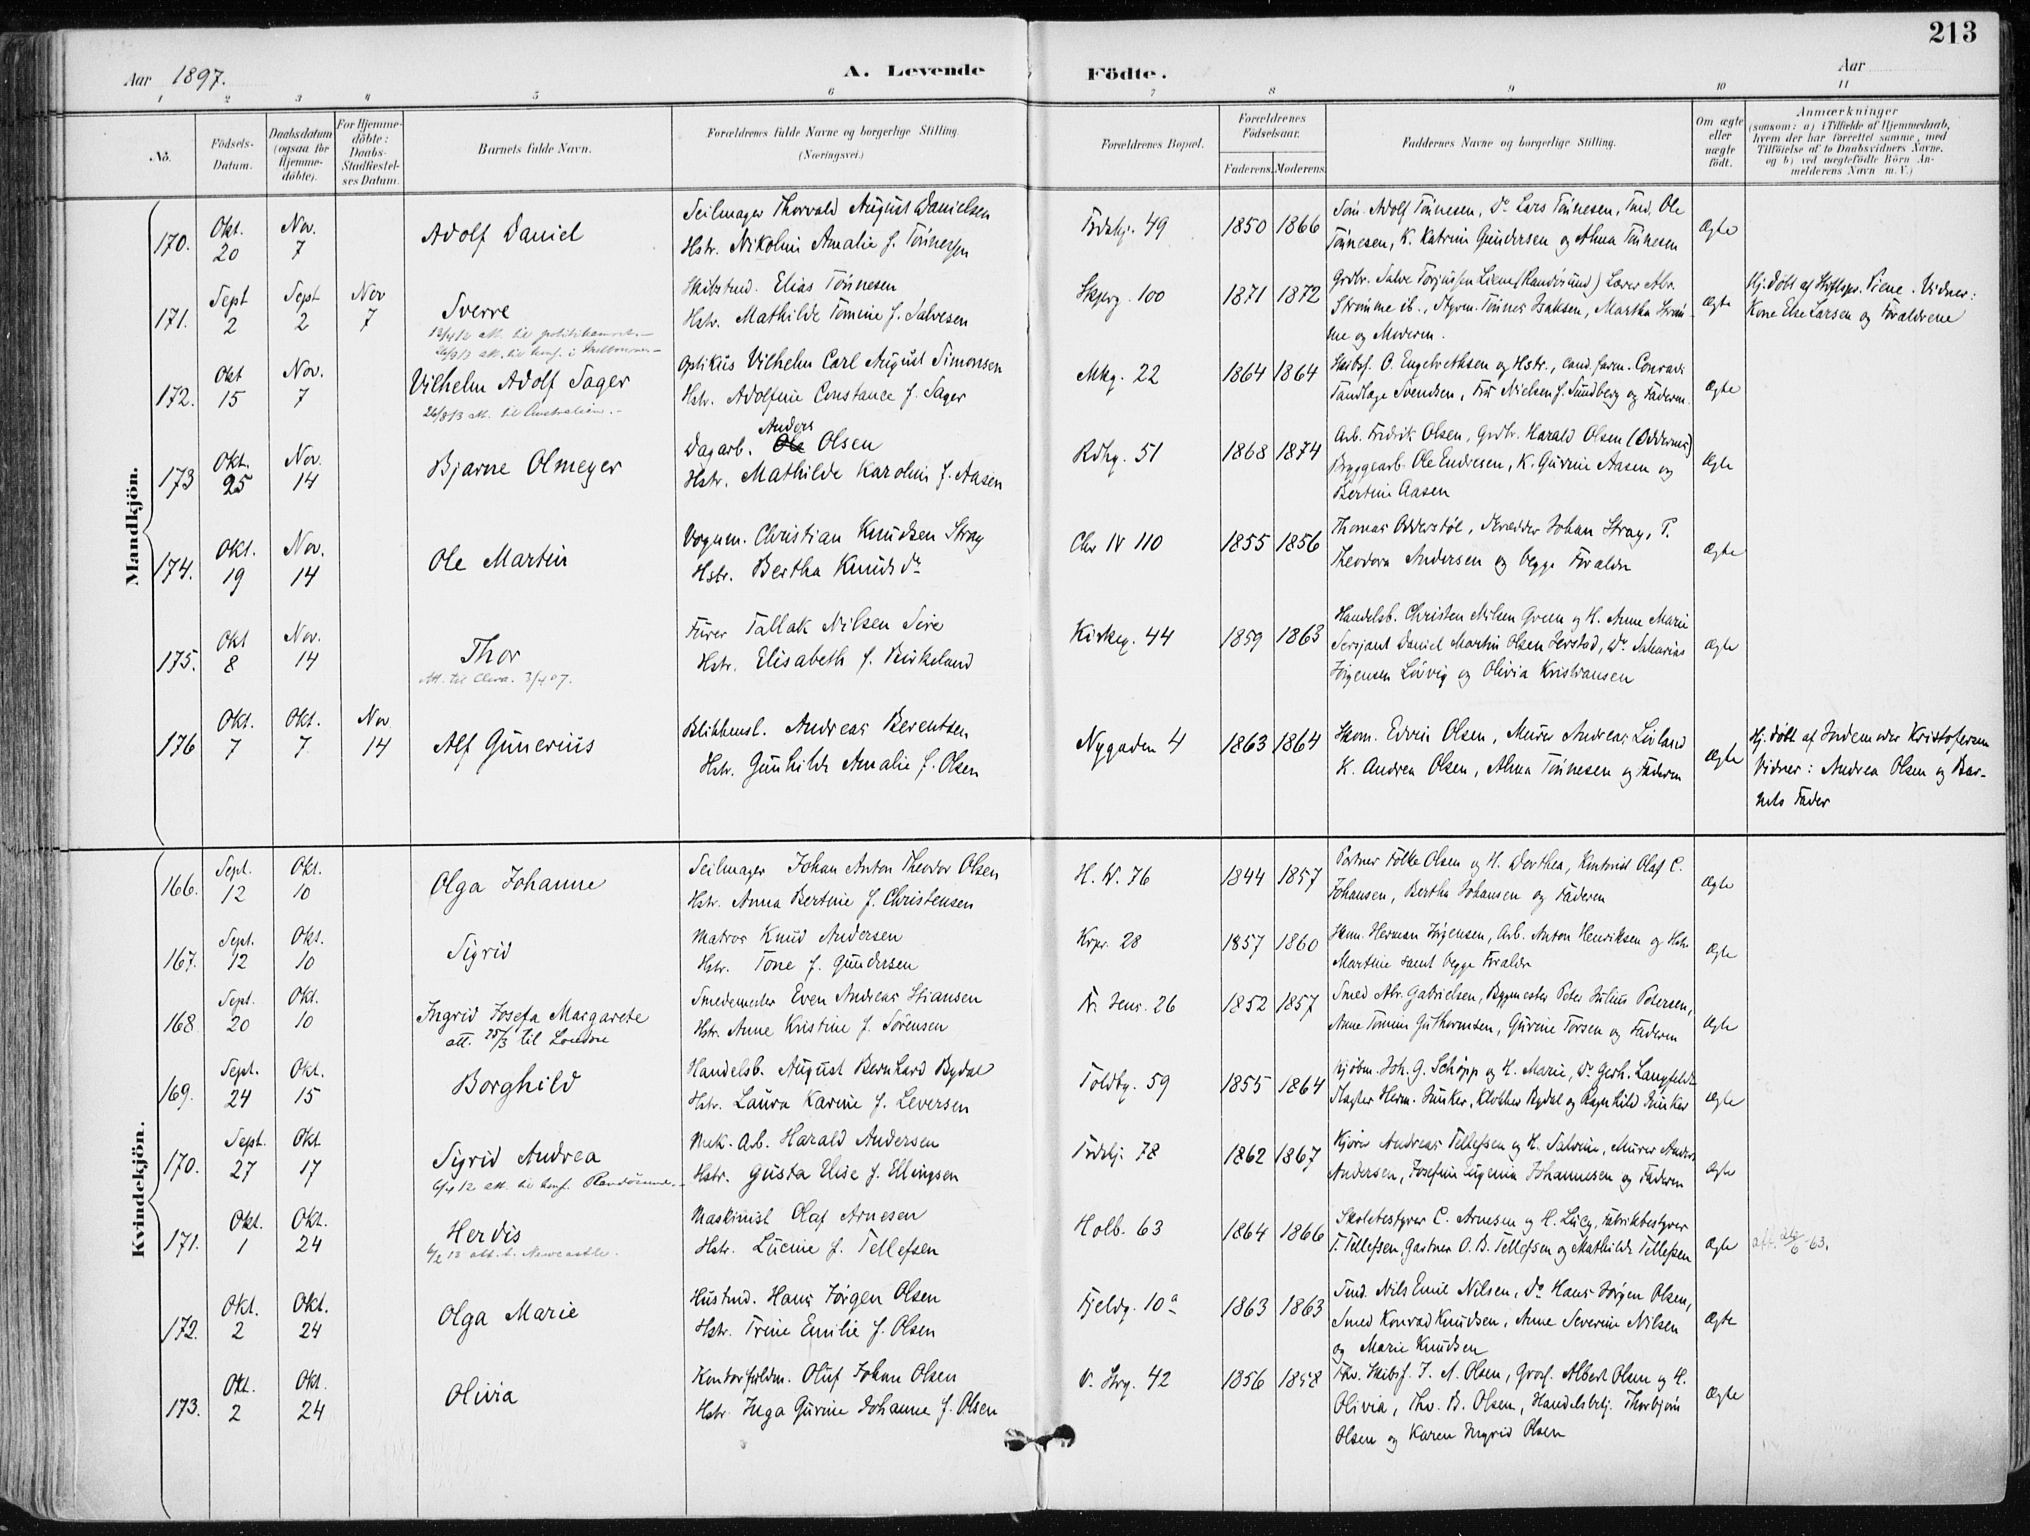 213
Aar 1897.
A. Levende
Födte.
Aar
1 2 3 4 5 6 7 8 9 10 11
No.
Födsels-Datum.
Daabsdatum (ogsaa for Hjemme-döbte).
For Hjemme-döbte: Daabs-Stadfæstel-ses Datum.
Barnets fulde Navn.
Forældrenes fulde Navne og borgerlige Stilling. (Næringsvei.)
Forældrenes Bopæl.
Forældrenes Födselsaar.
Faderens. Moderens.
Faddernes Navne og borgerlige Stilling.
Om ægte eller uægte födt.
Anmærkninger
(saasom: a) i Tilfælde af Hjemmedaab,
hvem der har forrettet samme, med
Tilföielse af to Daabsvidners Navne,
og b) ved uægtefödte Börn An-
melderens Navn m. V.)
Mandkjön.
170. Okt. 20 Nov. 7 Adolf Daniel
Seilmager Thorvald August Danielsen
Hstr. Nikolini Amalie f. Tönnesen
49 1850 1866
Söm. Adolf Tönnesen, Do Lars Tönnesen, Tmd. Ole
Tönnesen, K. Katrine Gundersen og Alma Tönnesen
Ægte
171. Sept 2 Sept 2 Nov 7 Sverre
Skibstmd. Elias Tönnesen
Hstr. Mathilde Tomine f. Salvesen
100 1871 1872
Grdbr. Salve Torjussen Liene (Randösund) Lærer Abr.
Strömme ib., Styrm. Tönnes Isaksen, Martha Ström-
me og Moderen.
Ægte
Hj. döbt af Stiftspr. Piene. Vidner:
Kone Else Larsen og Forældrene
172. Okt 15 Nov. 7 Vilhelm Adolf Sager
Optikus Vilhelm Carl August Simonsen
Hstr. Adolfine Constance f. Sager
Mkg. 22 1864 1864
Skibsf. O. Engelvethsen og Hstr., cand. farm. Conradi
Tandlæge Svendsen, Frk Nielsen f. Sundberg og Faderen.
Ægte
26/8 13 att. til Australien.
173 Okt. 25 Nov. 14 Bjarne Olmeyer
Anders
Dagarb. Ole Olsen
Hstr. Mathilde Karolini f. Aasen
Rdhg. 51 1868 1874
Arb. Fredrik Olsen, Grdbr. Harald Olsen (Oddernes)
Bryggearb. Ole Endresen, K. Gurine Aasen og
Bertine Aasen
Ægte
174. Okt. 19 Nov. 14 Ole Martin
Vognm. Christian Knudsen Stray
Hstr. Bertha Knudsdr
Chr IV 110 1855 1856
Thomas Odderstöl, Skrædder Johan Stray, P.
Theodora Andersen og begge Forældre
Ægte
175. Okt 8 Nov. 14 Thor
Att. til Chra. 3/4 07.
Furer Tallak Nilsen Seire
Hstr. Elisabeth f. Birkeland
Kirkeg. 44 1859 1863
Handelsb. Christen Nilsen Green og H. Anne Marie
Sersjant Daniel Martin Olsen Jerstad, Do Sakarias
Jörgensen Lövig og Olivia Kristiansen
Ægte
176 Okt. 7 Okt. 7 Nov 14 Alf Gunerius
Blikkensl. Andreas Berentsen
Hstr. Gunhilde Amalie f. Olsen
Nygaden 4 1863 1864
Skom. Edvin Olsen, Murer Andreas Livland
K. Andrea Olsen, Alma Tönnesen og Faderen
Ægte
Hj. döbt af Jordemoder Kristofersen
Vidner: Andrea Olsen og Bar-
nets Fader
Kvindekjön.
166. Sept. 12 Okt. 10 Olga Johanne
Seilmager Johan Anton Theodor Olsen
Hstr. Anna Bertine f. Christensen
H. W. 76 1844 1857
Portner Fölke Olsen og H. Dorthea, Kontorist Olaf C.
Johansen, Bertha Johansen og Faderen
Ægte
167. Sept. 12 Okt. 10 Sigrid
Matros Knud Andersen
Hstr. Tone f. Gundersen
Krpr. 28 1857 1860
Skm. Herman Jörgensen, Arb. Anton Henriksen og Hstr.
Martine samt begge Forældre
Ægte
168 Sept. 20 Okt. 10 Ingrid Josefa Margarete
att. 25/3 til London
Smedemester Even Andreas Stiansen
Hstr. Anne Kristine f. Sörensen
26 1852 1857
Smed Abr. Gabrielsen, Bygmester Peter Julius Petersen,
Anne Tomine Guthormsen, Gurine Torsen og Faderen
Ægte
169. Sept. 24 Okt. 15 Borghild
Handelsb. August Bernhard Bydal
Hstr. Laura Karine f. Leversen
Toldbg. 59 1855 1864
Kjöbm. Joh. G. Schöpp og H. Marie, Do Gerh. Langfeldt
Slagter Herm. Junker, Klokker Bydal og Ragnhild Junker
Ægte
170. Sept. 27 Okt. 17 Sigrid Andrea
6/4 12 att. til konf. Randösund.
Mek. Arb. Harald Andersen
Hstr. Gusta Elise f. Ellingsen
78 1862 1867
Kjörer Andreas Tellefsen og H. Salvine, Murer Anders
Andersen, Josefine Eugenia Johannesen og Faderen
Ægte
171. Okt. 1 Okt. 24 Herdis
6/2 13 att. t. Newcastle.
Maskinist Olaf Arnesen
Hstr. Lucine f. Tellefsen
Holb. 63 1864 1866
Skolebestyrer C. Arnesen og H. Lucy, Fabrikbestyrer
T. Tellefsen, Gartner O. B. Tellefsen og Mathilde Tellefsen
Ægte
172. Okt. 2 Okt. 24 Olga Marie
Hustmd. Hans Jörgen Olsen
Hstr. Trine Emilie f. Olsen
Fjeldg. 10a 1863 1863
Tmd. Nils Emil Nilsen, Do Hans Jörgen Olsen,
Smed Konrad Knudsen, Anne Severine Nilsen
og Marie Knudsen
Ægte
173. Okt. 2 Okt. 24 Olivia
Kontorfuldm. Oluf Johan Olsen
Hstr. Inga Gurine Johanne f. Olsen
V. Strg. 42 1856 1858
Fhv. Skibsf. J. A. Olsen, Gross. Albert Olsen og H.
Olivia, Fhv. B. Olsen, Handelsbetj. Thorbjörn
Olsen og Karen Ingrid Olsen
Ægte